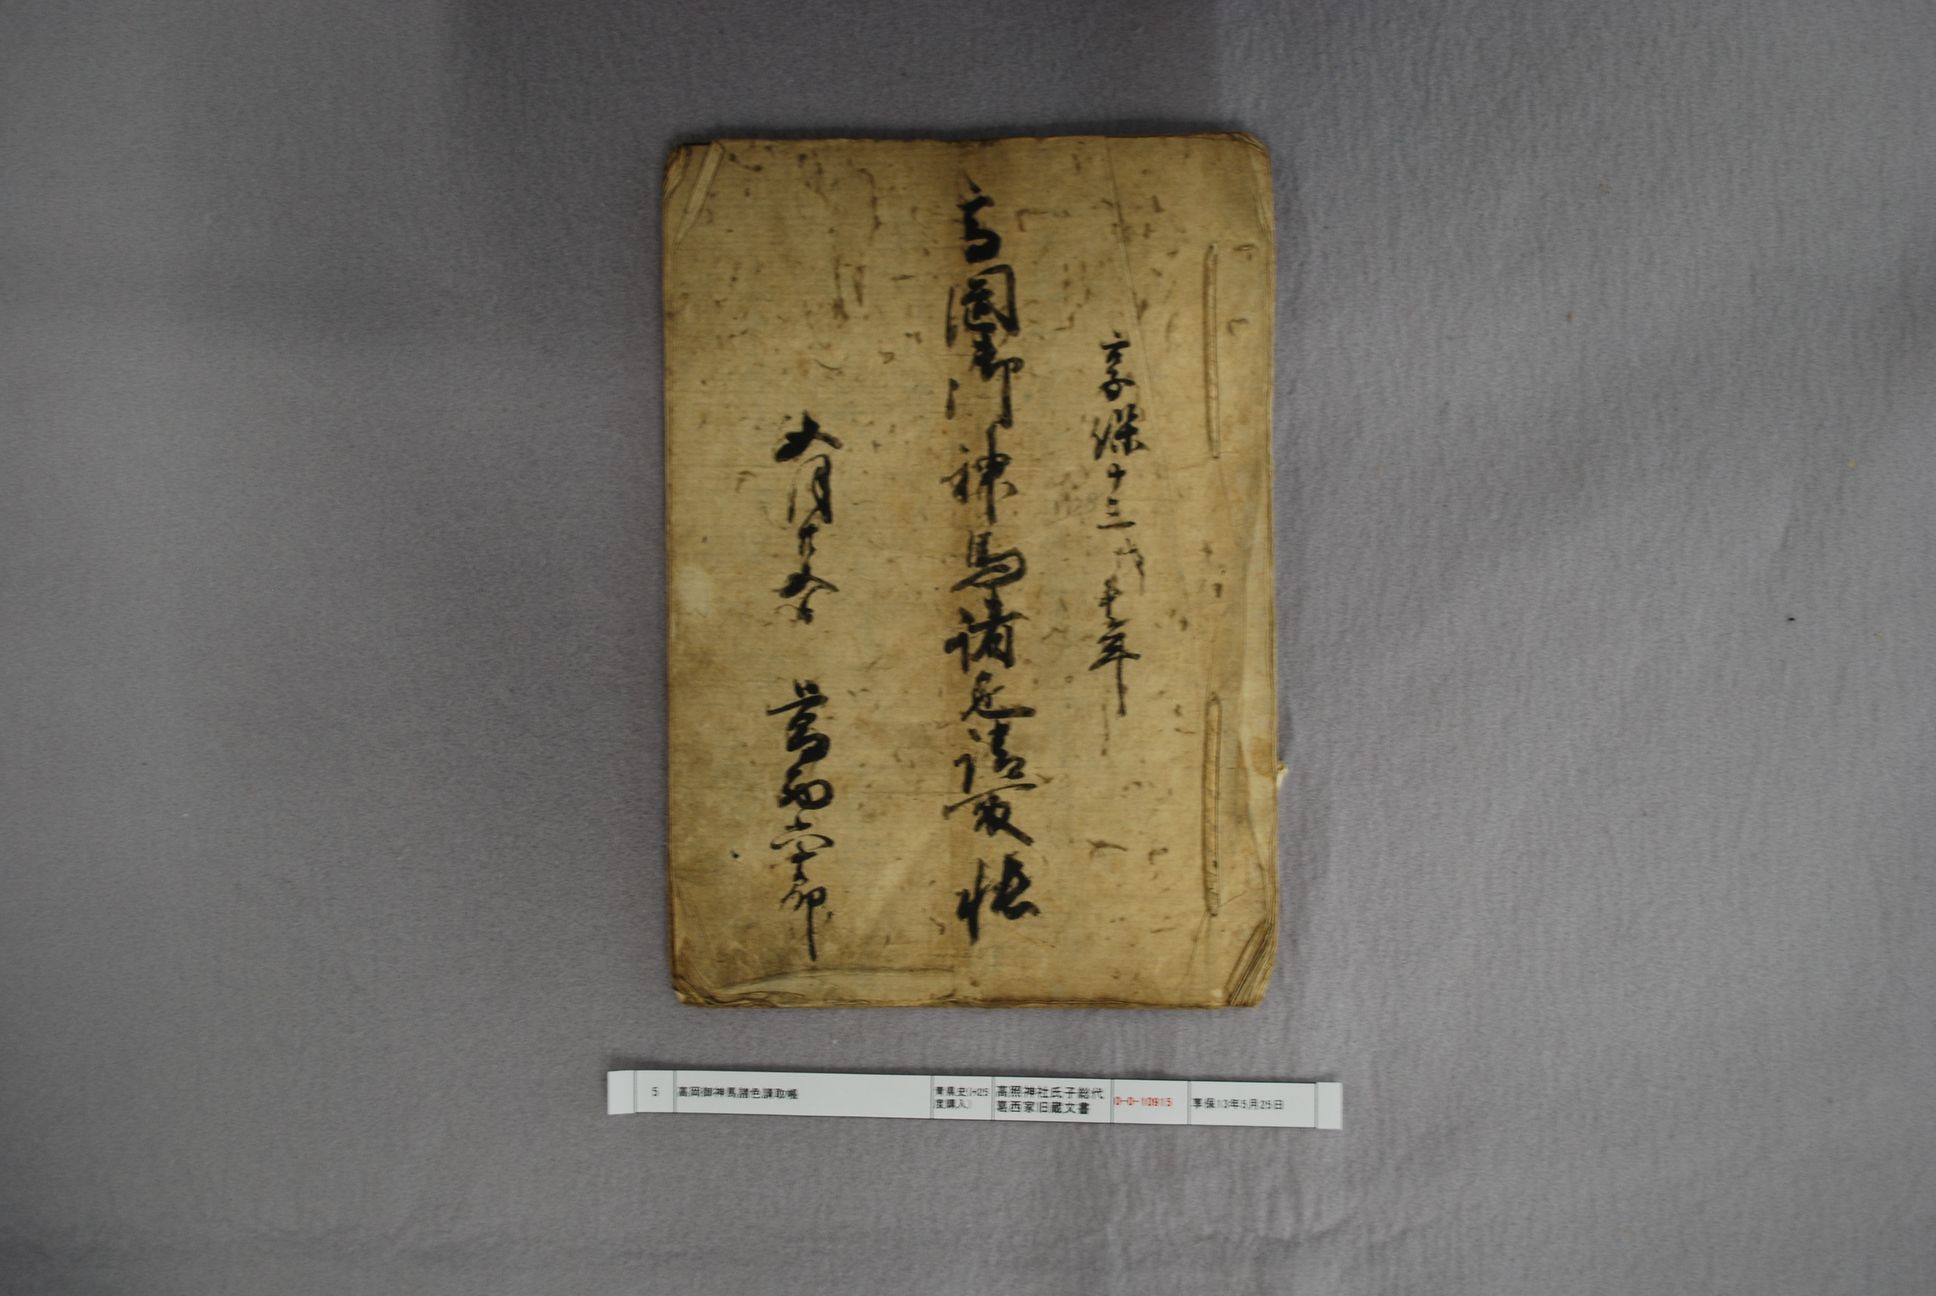 享保十三戊申年
高岡御神馬諸色請取帳
五月廿五日 葛西六郎
5
高岡御神馬諸色請取帳
青県史(H25
度購入)
高照神社氏子総代
葛西家旧蔵文書
0-0-10915
享保13年5月25日